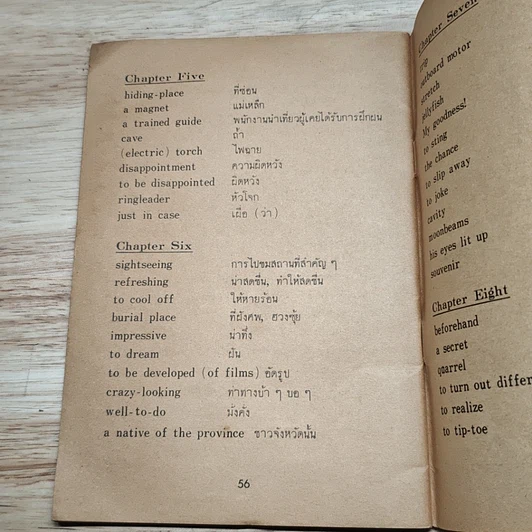 Chapter Five
hiding-place ที่ซ่อน
a magnet แม่เหล็ก
a trained guide พนักงานนำเที่ยวผู้เคยได้รับการฝึกฝน
cave ถ้ำ
(electric) torch ไฟฉาย
disappointment ความผิดหวัง
to be disappointed ผิดหวัง
ringleader หัวโจก
just in case เผื่อ (ว่า)
Chapter Six
sightseeing การไปชมสถานที่สำคัญ ๆ
refreshing น่าสดชื่น, ทำให้สดชื่น
to cool off ให้หายร้อน
burial place ที่ฝังศพ, ฮวงซุ้ย
impressive น่าทึ่ง
to dream ฝัน
to be developed (of films) อัดรูป
crazy-looking ท่าทางบ้า ๆ บอ ๆ
well-to-do มั่งคั่ง
a native of the province ชาวจังหวัดนั้น
56
Chapter Seven
outboard motor
stretch
jellyfish
My goodness!
to sting
the chance
to slip away
to joke
cavity
moonbeams
his eyes lit up
souvenir
Chapter Eight
beforehand
a secret
quarrel
to turn out differ
to realize
to tip-toe